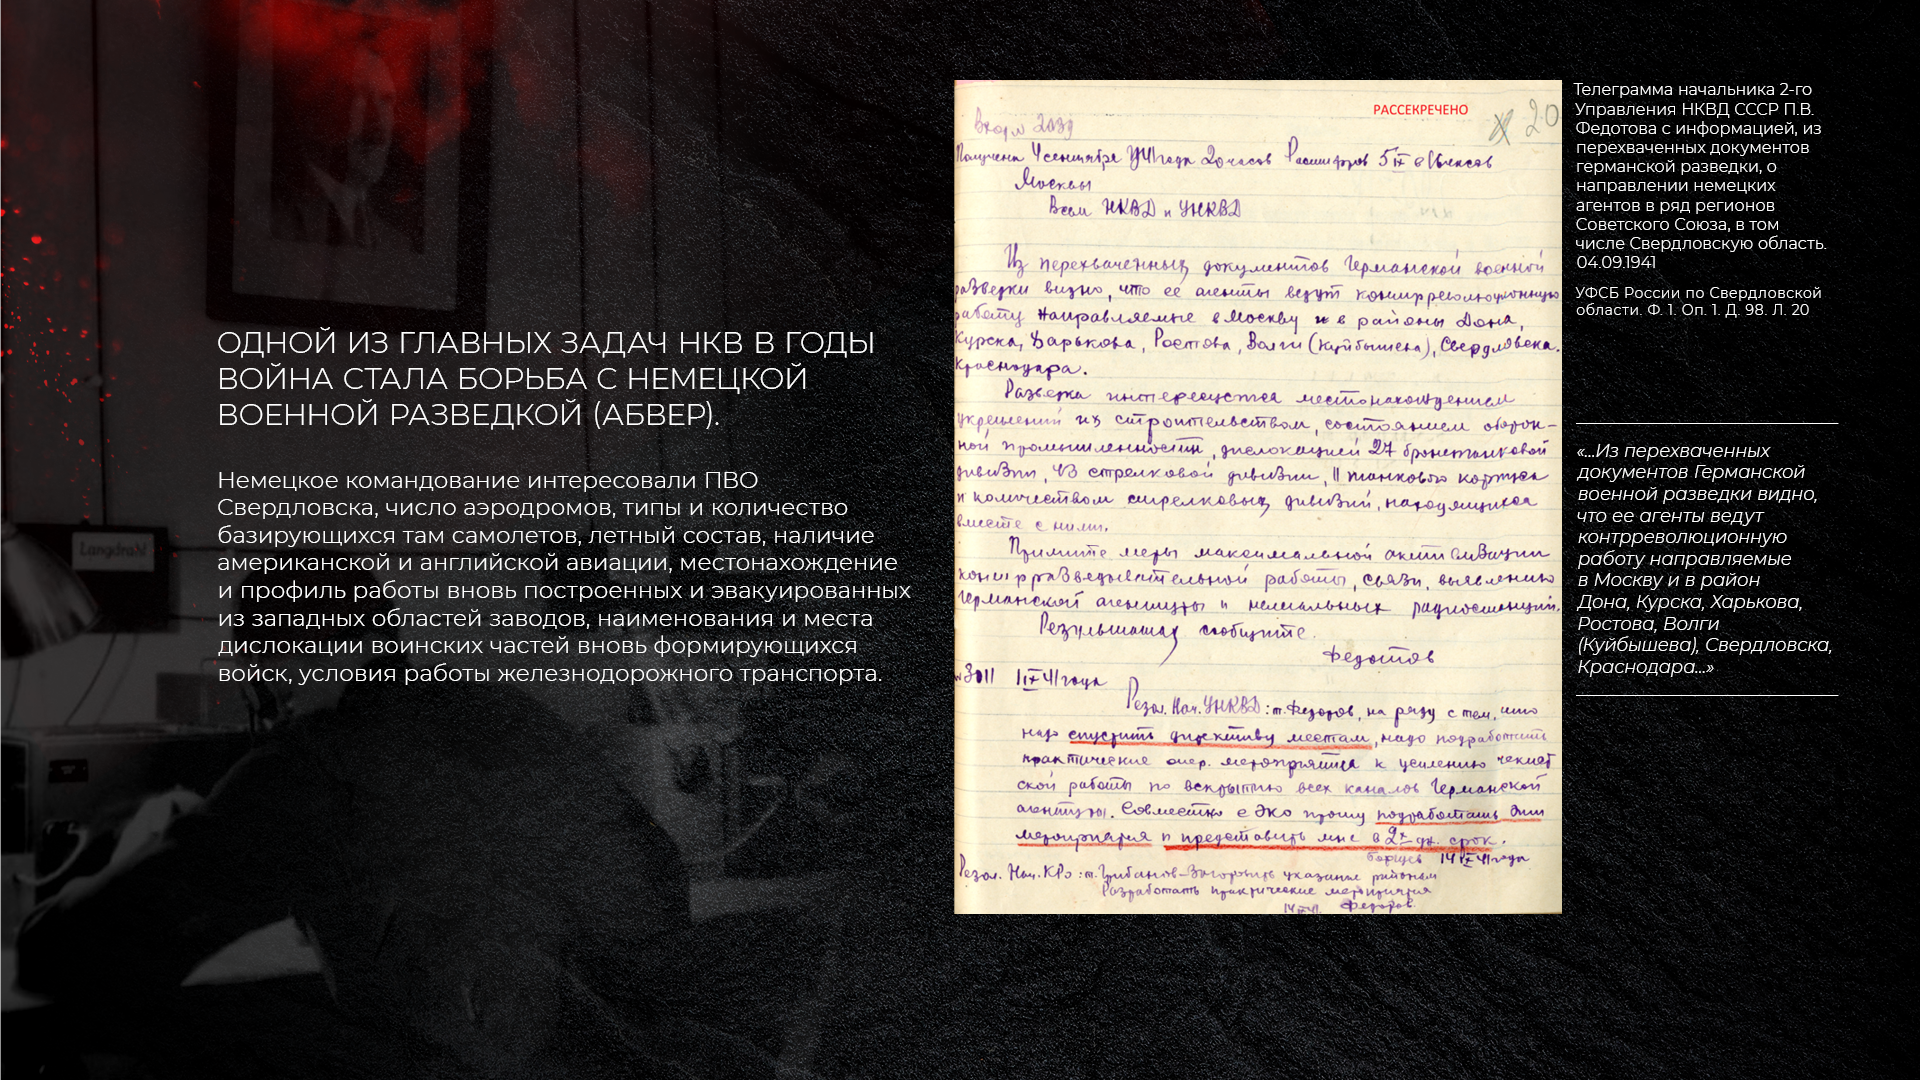 ОДНОЙ ИЗ ГЛАВНЫХ ЗАДАЧ НКВ В ГОДЫ
ВОЙНА СТАЛА БОРЬБА С НЕМЕЦКОЙ
ВОЕННОЙ РАЗВЕДКОЙ (АБВЕР).
Немецкое командование интересовали ПВО
Свердловска, число аэродромов, типы и количество
базирующихся там самолетов, летный состав, наличие
американской и английской авиации, местонахождение
и профиль работы вновь построенных и эвакуированных
из западных областей заводов, наименования и места
дислокации воинских частей вновь формирующихся
войск, условия работы железнодорожного транспорта.
Langdraht
РАССЕКРЕЧЕНО
20
Вход № 2039
Получена 4 сентября 1941 года 20 часов Расшифров 5 IX в
Москвы
Всем НКВД и УНКВД
Из перехваченных документов Германской военной
разведки видно, что ее агенты ведут контрреволюционную
работу направляемые в Москву и в районы Дона,
Курска, Харькова, Ростова, Волги (Куйбышева), Свердловска.
Краснодара.
Разведка интересуется местонахождением
укреплений их строительством, состоянием оборон-
ной промышленности, дислокацией 27 бронетанковой
дивизии, 43 стрелковой дивизии, II танкового корпуса
и количеством стрелковых дивизий, находящихся
вместе с ними.
Примите меры максимальной активизации
контрразведывательной работы, связи, выявлению
Германской агентуры и нелегальных радиостанций.
Результатах сообщите.
Федотов
№ 3011 IX 41 года
Резол. Нач. УНКВД: т. Федоров, на ряду с тем, что
надо спустить директиву местам, надо подработать
практические опер. мероприятия к усилению чекист
ской работы по вскрытию всех каналов Германской
агентуры. Совместно с ЭКО прошу подработать эти
мероприятия и представить мне в 2х дн. срок.
Борщев 14 IX 41 года
Резол. Нач. КРО: т. Грибанов - указания районам
Разработать практические мероприятия
14 IX 41. Федоров.
Телеграмма начальника 2-го
Управления НКВД СССР П.В.
Федотова с информацией, из
перехваченных документов
германской разведки, о
направлении немецких
агентов в ряд регионов
Советского Союза, в том
числе Свердловскую область.
04.09.1941
УФСБ России по Свердловской
области. Ф. 1. Оп. 1. Д. 98. Л. 20
«...Из перехваченных
документов Германской
военной разведки видно,
что ее агенты ведут
контрреволюционную
работу направляемые
в Москву и в район
Дона, Курска, Харькова,
Ростова, Волги
(Куйбышева), Свердловска,
Краснодара...»